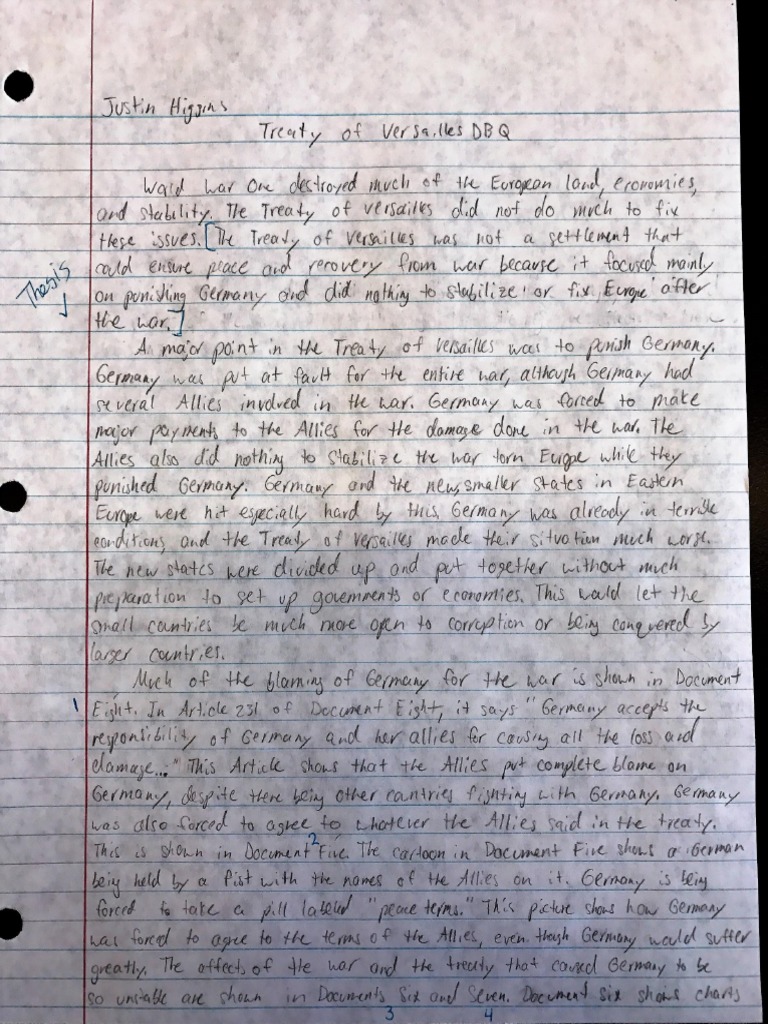 Justin Higgins
Treaty of Versailles DBQ
World war One destroyed much of the European land, economies,
and stability. The Treaty of Versailles did not do much to fix
these issues. [The Treaty of Versailles was not a settlement that
could ensure peace and recovery from war because it focused mainly
Thesis
on punishing Germany and did nothing to stabilize or fix Europe after
the war.]
A major point in the Treaty of Versailles was to punish Germany.
Germany was put at fault for the entire war, although Germany had
several Allies involved in the war. Germany was forced to make
major payments to the Allies for the damage done in the war. The
Allies also did nothing to stabilize the war torn Europe while they
punished Germany. Germany and the new, smaller states in Eastern
Europe were hit especially hard by this. Germany was already in terrible
conditions, and the Treaty of Versailles made their situation much worse.
The new states were divided up and put together without much
preparation to set up governments or economies. This would let the
small countries be much more open to corruption or being conquered by
larger countries.
Much of the blaming of Germany for the war is shown in Document
1
Eight. In Article 231 of Document Eight, it says "Germany accepts the
responsibility of Germany and her allies for causing all the loss and
damage..." This Article shows that the Allies put complete blame on
Germany, despite there being other countries fighting with Germany. Germany
was also forced to agree to whatever the Allies said in the treaty.
This is shown in Document 2 Five. The cartoon in Document Five shows a German
being held by a fist with the names of the Allies on it. Germany is being
forced to take a pill labeled "peace terms." This picture shows how Germany
was forced to agree to the terms of the Allies, even though Germany would suffer
greatly. The affects of the war and the treaty that caused Germany to be
so unstable are shown in Documents Six and Seven. Document six shows charts
3 4